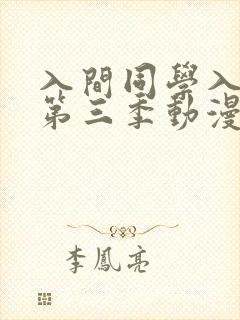 入間同學入
第三季動漫
李鳳亮